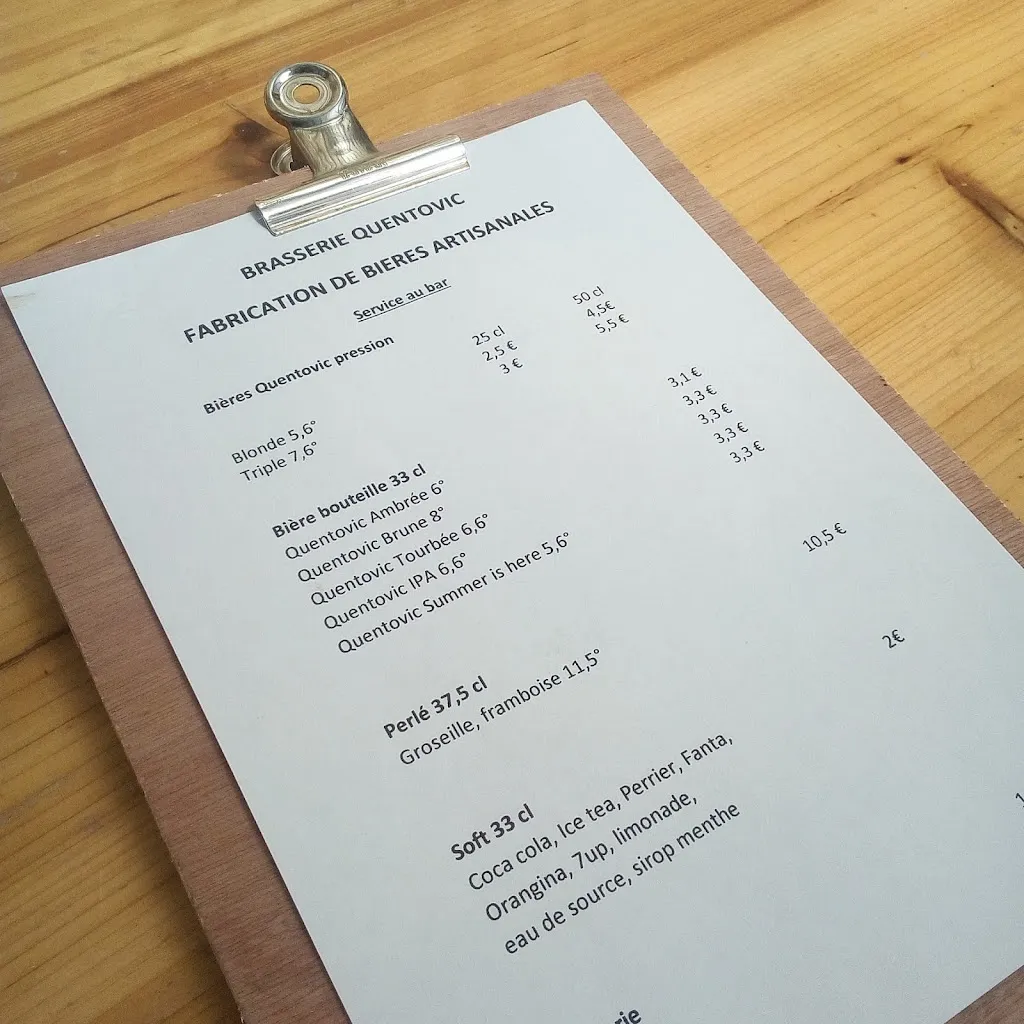 BRASSERIE QUENTOVIC
FABRICATION DE BIERES ARTISANALES
Service au bar
Bières Quentovic pression
25 cl 50 cl
Blonde 5,6° 2,5 € 4,5€
Triple 7,6° 3 € 5,5 €
Bière bouteille 33 cl
Quentovic Ambrée 6° 3,1 €
Quentovic Brune 8° 3,3 €
Quentovic Tourbée 6,6° 3,3 €
Quentovic IPA 6,6° 3,3 €
Quentovic Summer is here 5,6° 3,3 €
Perlé 37,5 cl
Groseille, framboise 11,5° 10,5 €
Soft 33 cl
Coca cola, Ice tea, Perrier, Fanta, 2€
Orangina, 7up, limonade,
eau de source, sirop menthe